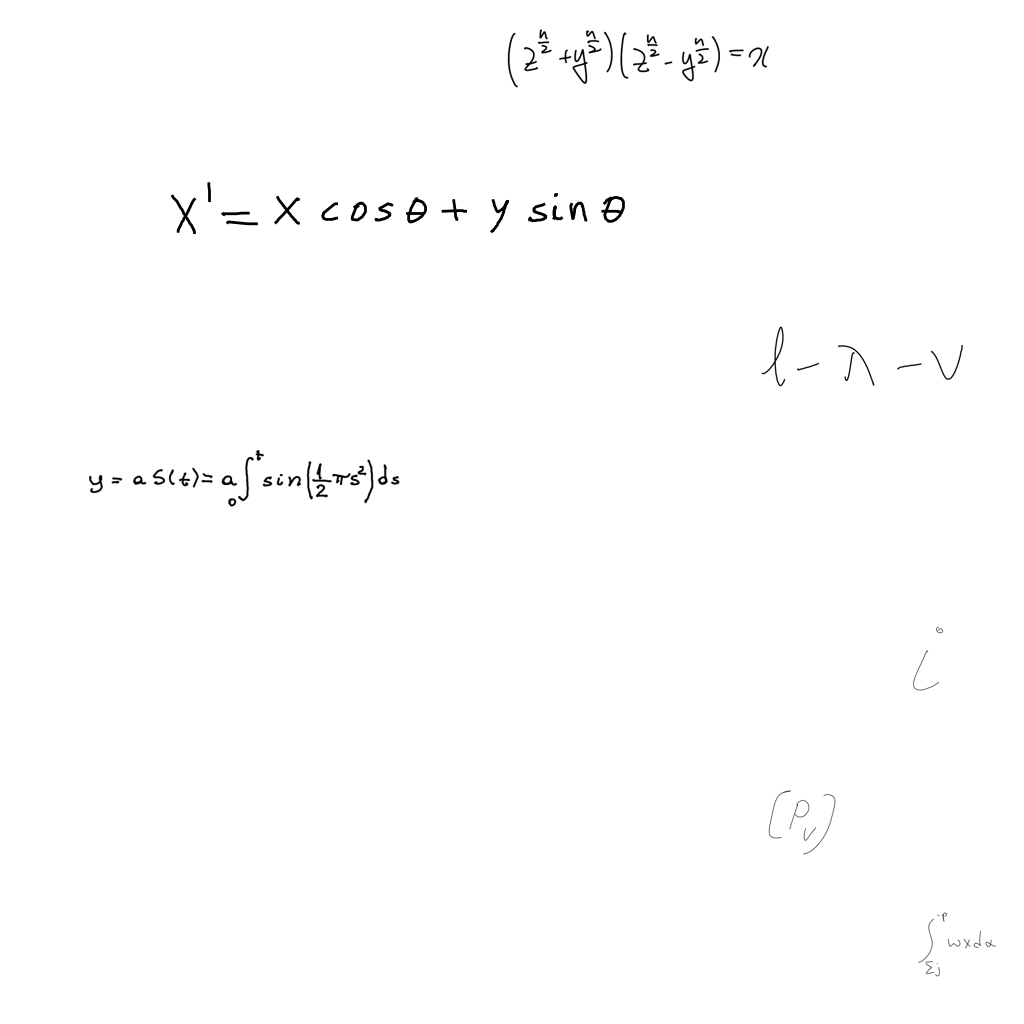 (z^{n/2} + y^{n/2})(z^{n/2} - y^{n/2}) = x
x' = x cos θ + y sin θ
l - λ - v
y = a S(t) = a ∫_0^t sin(1/2 π s^2) ds
i
[P_v]
∫_{Σj}^{ip} wxdα